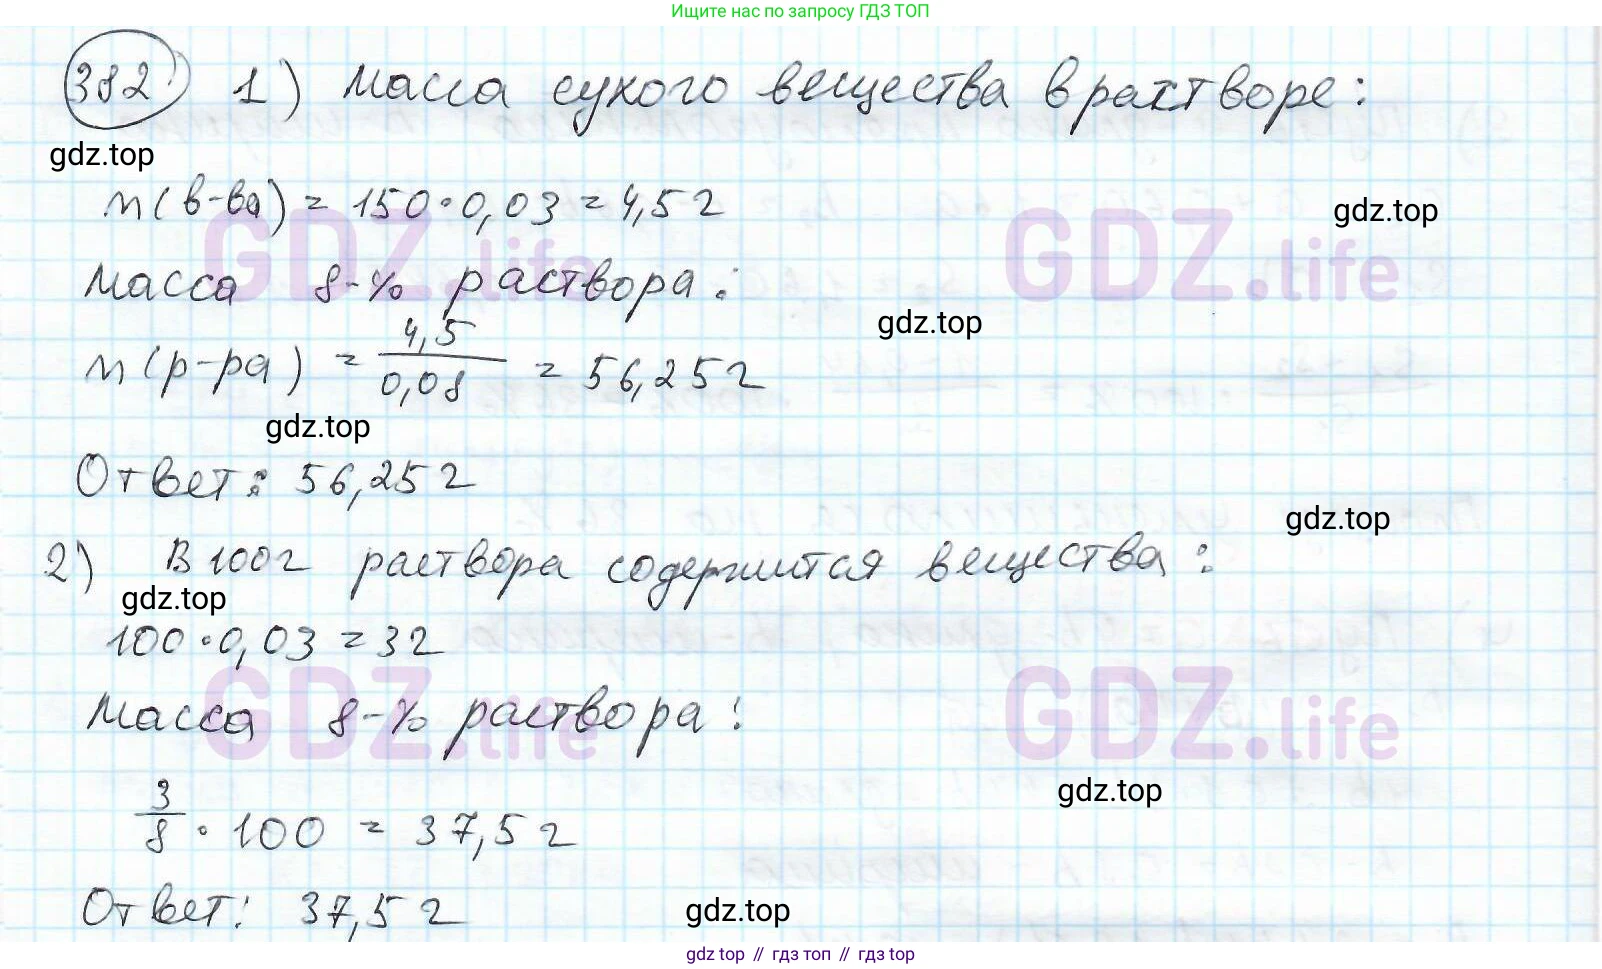 Ищите нас по запросу ГДЗ ТОП
382 1) Масса сухого вещества в растворе:
gdz.top
m(в-ва) = 150·0,03 = 4,5 г
gdz.top
GDZ.life GDZ.life
Масса 8-% раствора:
gdz.top
m(р-ра) = 4,5/0,08 = 56,25 г
gdz.top
Ответ: 56,25 г
gdz.top
2) В 100 г раствора содержится вещества:
gdz.top
100·0,03 = 3 г
GDZ.life GDZ.life
Масса 8-% раствора:
gdz.top
3/8 · 100 = 37,5 г
Ответ: 37,5 г
gdz.top
gdz top // гдз топ // gdz.top